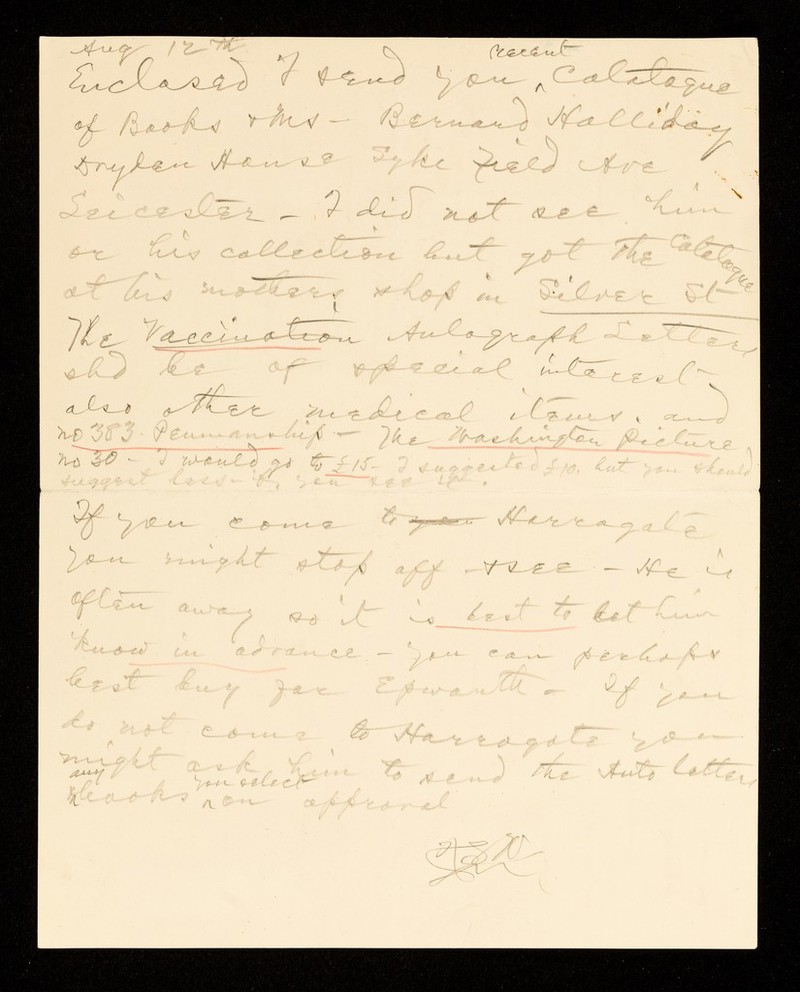 Aug 12th
Enclosed I send you recent Catalogue
of Books & Ms - Bernard Halliday
Dryden House Syke Field Ave
Leicester - I did not see him
or his collection but got the Catalogue
at his mothers shop in Silver St
The Vaccination Autograph Letters
shd be of special interest
also other medical items. and
no 383 Penmanship - The Washington Picture
no 30 - I would go to £15 - I suggested £10. but you should
suggest less - if you see it.
If you come to you Harrogate
you might stop off & see - He is
often away so it is best to let him
know in advance - you can perhaps
best buy for Epworth - If you
do not come to Harrogate you
might ask him to send the Auto letters
any books you select on approval